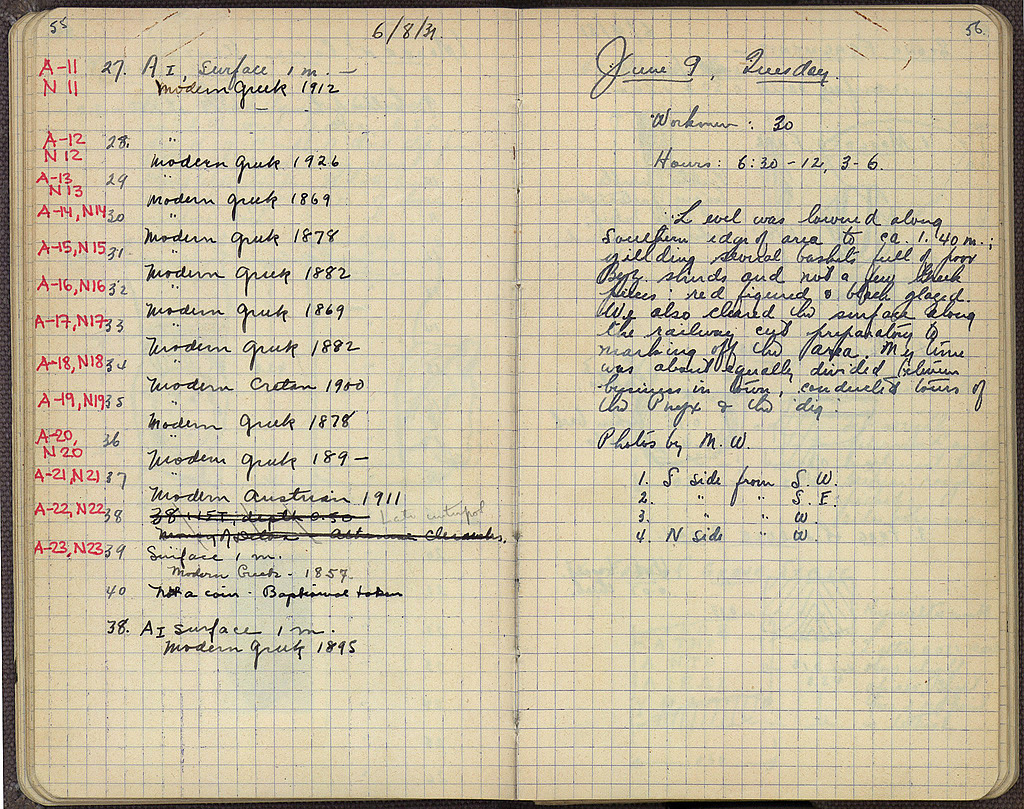 55
6/8/31
A-11 27. A I, surface 1 m. —
N 11 Modern Greek 1912
A-12 28. "
N 12 Modern Greek 1926
A-13 29 "
N 13 Modern Greek 1869
A-14, N14 30 "
Modern Greek 1878
A-15, N15 31 "
Modern Greek 1882
A-16, N16 32 "
Modern Greek 1869
A-17, N17 33 "
Modern Greek 1882
A-18, N18 34 "
Modern Cretan 1900
A-19, N19 35 "
Modern Greek 1878
A-20, 36 "
N 20 Modern Greek 189–
A-21, N21 37 "
Modern Austrian 1911
A-22, N22 38 38 depth 0.50 Late
A-23, N23 39 Surface 1 m.
Modern Greek - 1857
40 Not a coin - Baptismal token
38. A I surface 1 m.
Modern Greek 1895
56
June 9, Tuesday.
Workmen: 30
Hours: 6:30-12, 3-6.
Level was lowered along
Southern edge of area to ca. 1.40 m.;
yielding several baskets full of poor
Byz. sherds and not a few Greek
pieces: red figured & black glazed.
We also cleared the surface along
the railway cut preparatory to
marking off the area. My time
was about equally divided between
business in town, conducted tours of
the Pnyx & the dig.
Photos by M. W.
1. S side from S. W.
2. " " S. E.
3. " " W.
4. N side " W.